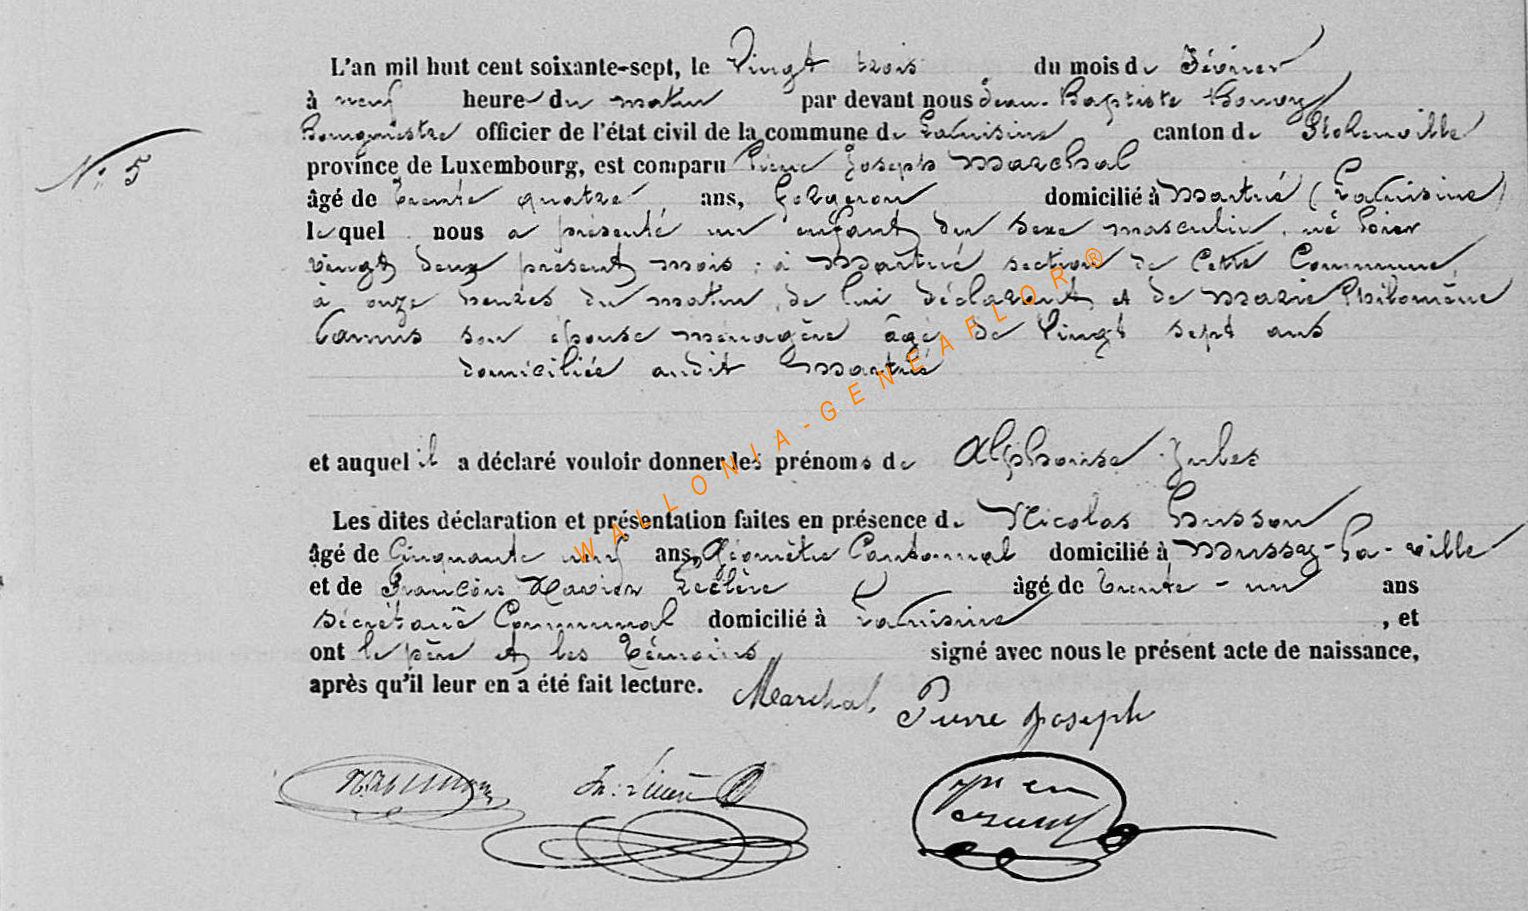 L'an mil huit cent soixante-sept, le Vingt trois du mois de Février
à neuf heure du matin par devant nous Jean Baptiste
Bourgmestre officier de l'état civil de la commune de canton de
N° 5
province de Luxembourg, est comparu Pierre Joseph Marchal
âgé de trente quatre ans, forgeron domicilié à Martué
lequel nous a présenté un enfant du sexe masculin, né hier
vingt deux présent mois, à Martué section de cette Commune,
à onze heures du matin, de lui déclarant et de Marie Philomène
Camus son épouse ménagère âgé de Vingt sept ans
domiciliée audit Martué
et auquel il a déclaré vouloir donner les prénoms de Alphonse Jules
WALLONIA-GENEAFLOR ®
Les dites déclaration et présentation faites en présence de Nicolas Husson
âgé de Cinquante neuf ans, Géomètre Cantonnal domicilié à Mussy-la-ville
et de François Xavier Leclère âgé de trente-un ans
secrétaire Communal domicilié à , et
ont le père et les témoins signé avec nous le présent acte de naissance,
après qu'il leur en a été fait lecture. Marchal Pierre Joseph